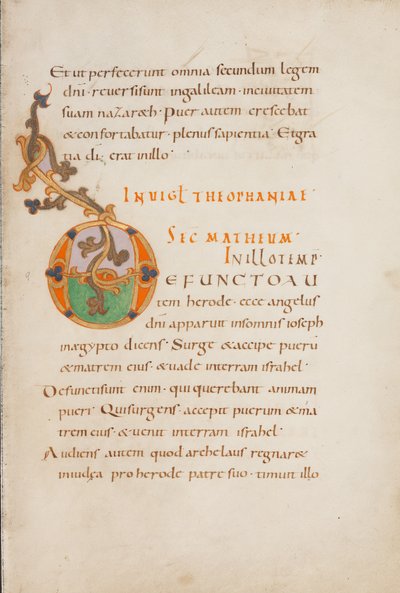 Et ut perfecerunt omnia secundum legem
dñi · reversi sunt in galileam · in civitatem
suam nazareth · Puer autem crescebat
& confortabatur · plenus sapientia · Et gra
tia dī · erat in illo ·
IN UIGL̄ THEOPHANIAE ·
SEC̄ MATHEUM ·
IN ILLO TEMP̄
DEFUNCTO AU
tem herode · ecce angelus
dñi apparuit in somnis ioseph
in ægypto dicens · Surge & accipe puerū
& matrem eius · & uade in terram israhel ·
Defuncti sunt enim · qui querebant animam
pueri · Qui surgens · accepit puerum & ma
trem eius · & uenit in terram israhel ·
Audiens autem quod archelaus regnar&
in iudęa pro herode patre suo · timuit illo